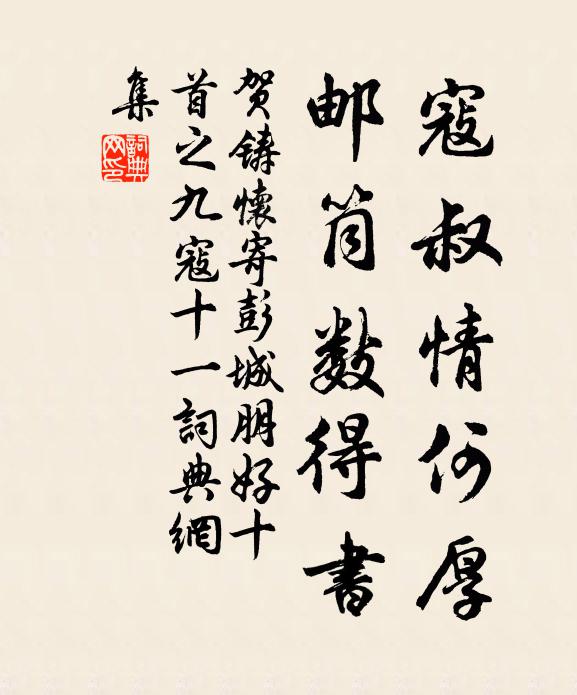 寇叔情何厚
邮筒数得書
贺鑄懷寄彭城朋好十
首之九寇十一詞典網
集
詞典网印